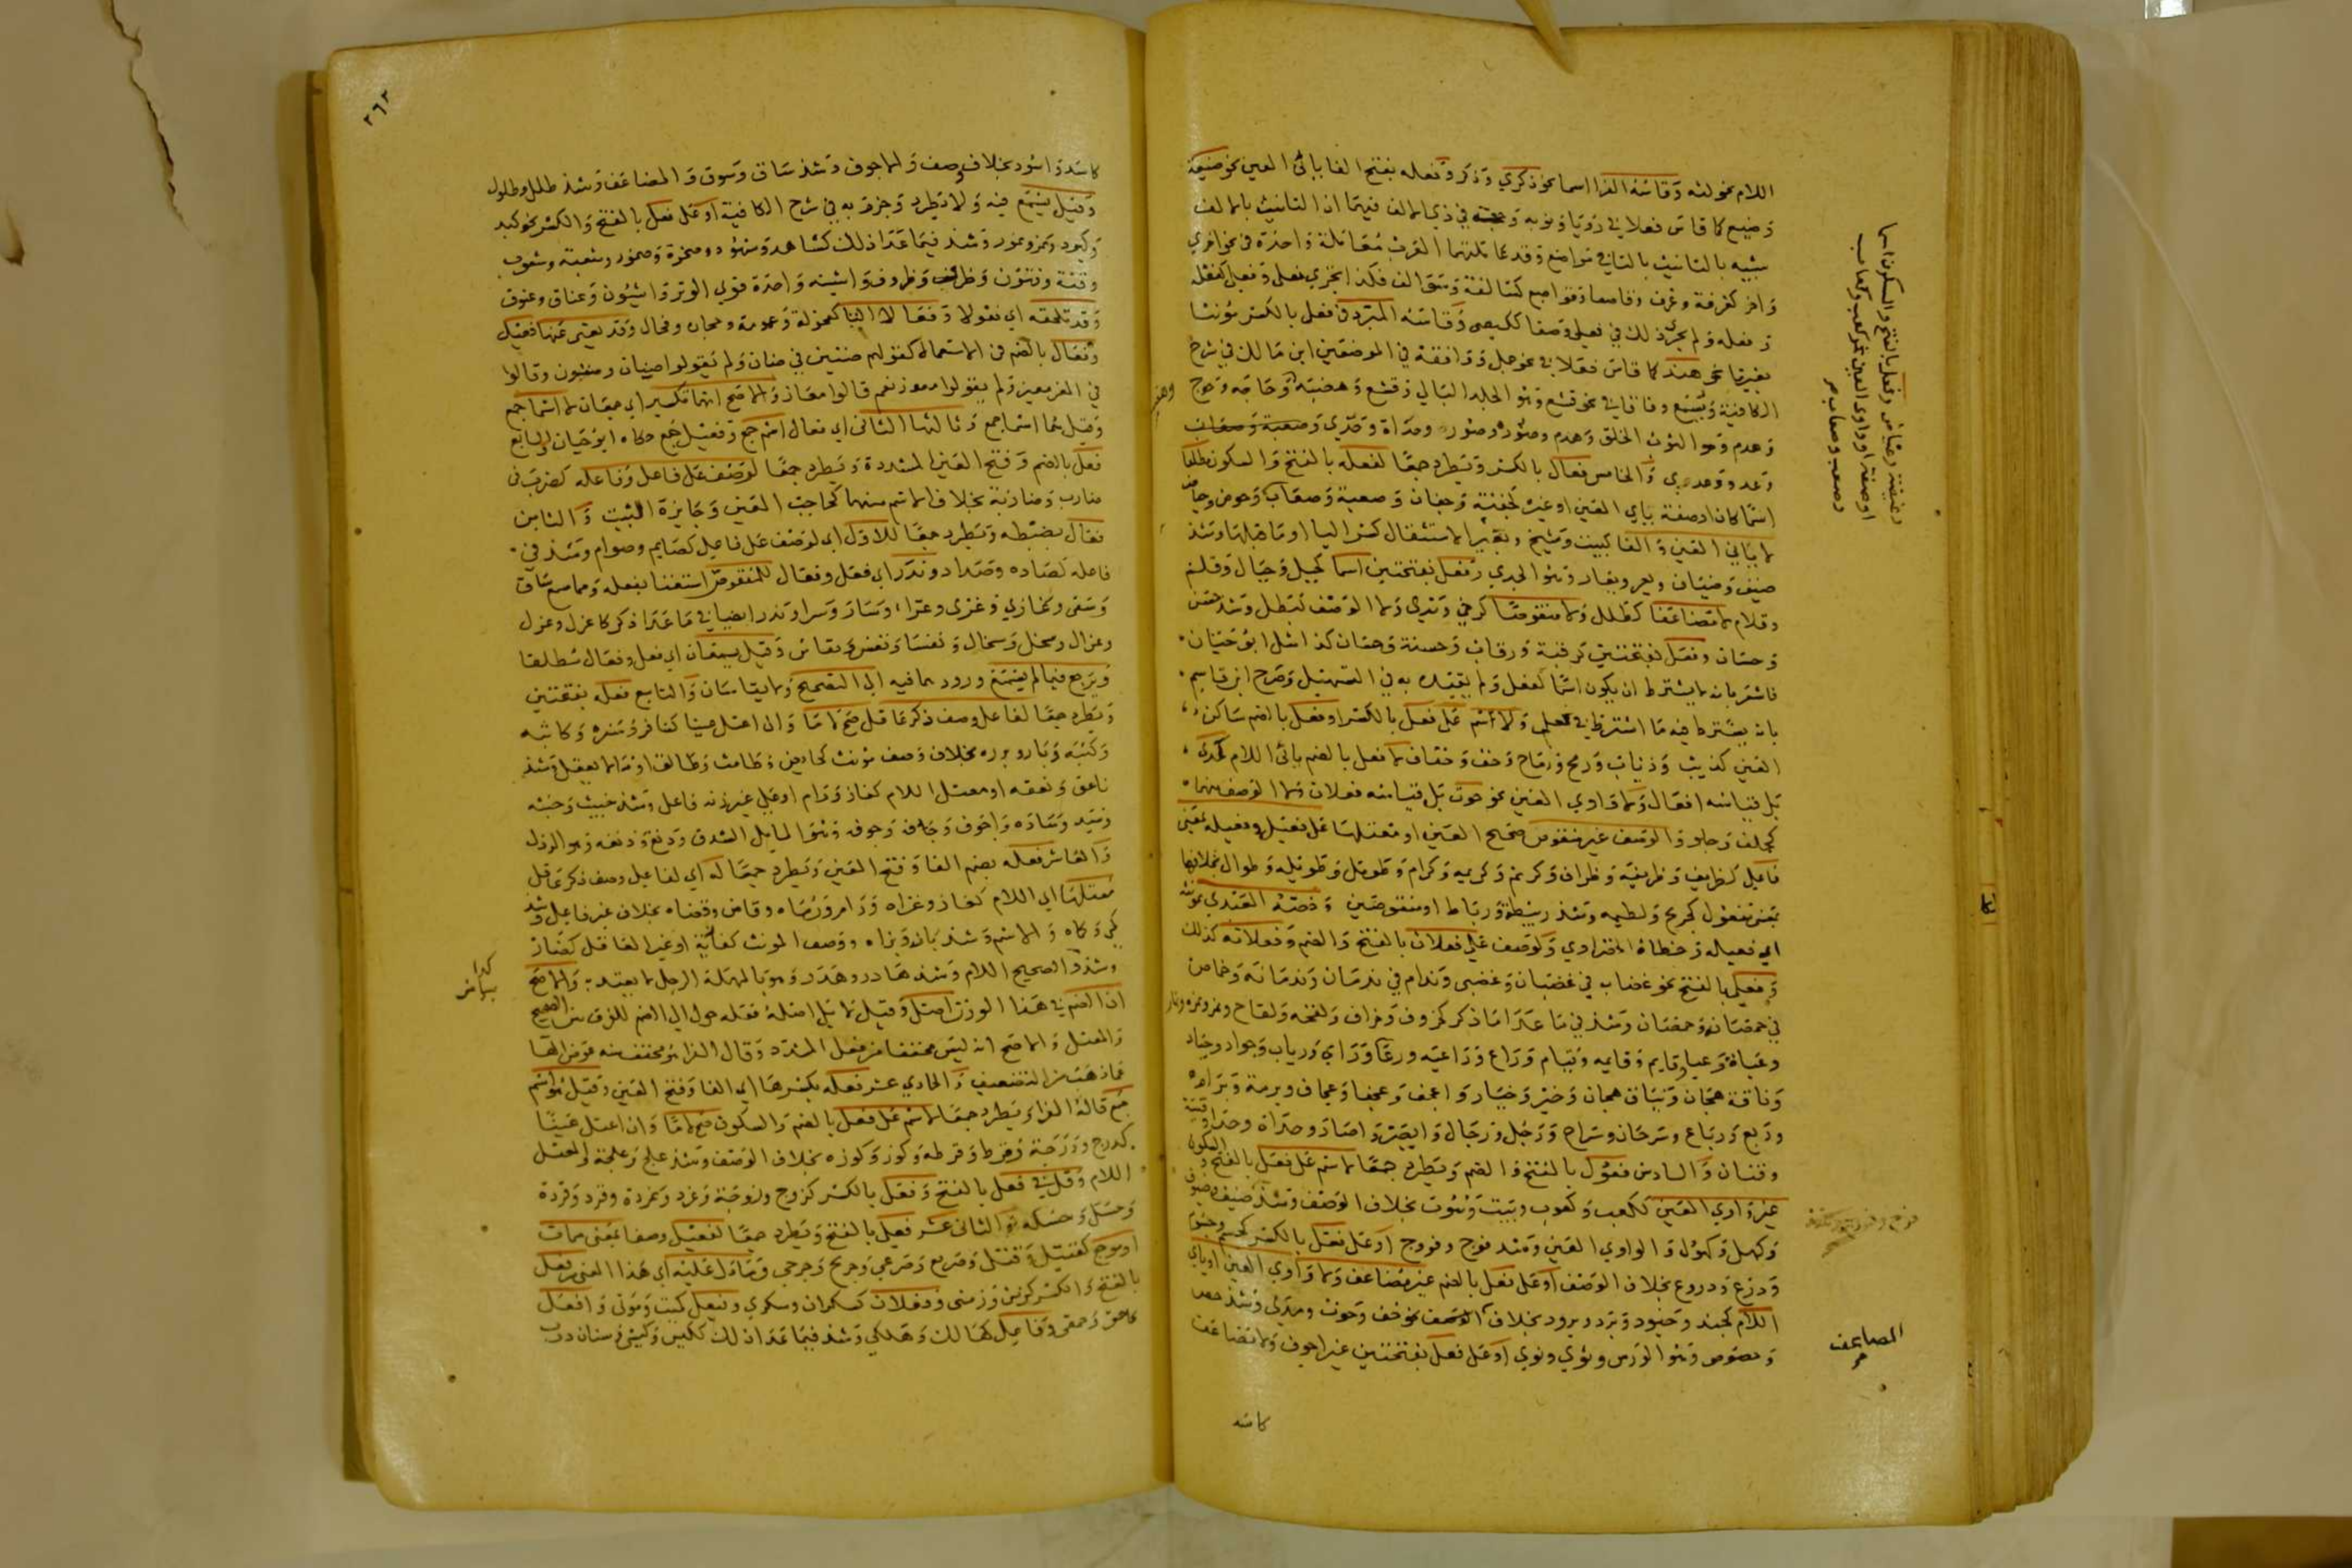 اللام نحو لثه وقاسه الفرا اسما نحو ذكري وذكر وفعله بفتح الفا يائى العين نحو ضيعة
وضيع كما قاس فعلا في رؤيا ونوبه في ذي الالف فيهما ان التانيث بالالف
شبيه بالتانيث بالتا في مواضع وقد عاملتهما العرب معاملة واحدة في نحو اخري
واخر كغرفة وغرف وقاصعا وقواصع كسالفة وسوالف فكذا تجري فعلى وفعلى كفعله
وفعله ولم يجرد ذلك في فعلى وصفا ككيصى وقاسه المبرد في فعل بالكسر مؤنثا
بغيرتا نحو هند كما قاس فعلا في نحو جمل ووافقه في الموضعين ابن مالك في شرح
الكافية وسمع وفاقا في نحو قشع وهو الجلد البالي وقشع وهضبه وحاجه وحوج
وهدم وهو الثوب الخلق وهدم وصوره وصور وحداة وحدي
وعدو وعدي والخامس فعال بالكسر ويطرد جمعا لفعله بالفتح والسكون مطلقا
اسما كان او صفة ياي العين او غيره كجفنة وجفان وصعبة وصعاب وحوض وحياض
لا يائي العين والفا كبيت وشيخ الاستثقال كسر اليا او ما قبلها وشذ
ضيف وضيفان ويعر ويعار وهو الجدي وفعل بفتحتين اسما كجبل وجبال وقلم
وقلام لا مضاعفا كطلل ولا منقوصا كرحى وندى ولا الوصف كبطل وشذ حسن
وحسان وفعله بفتحتين كرقبة ورقاب وحسنة وحسان كذا مثل ابو حيان
فاشعر بانه لا يشترط ان يكون اسما كفعل ولم يقيده به في التسهيل وصرح ابن قاسم
بانه يشترط فيه ما اشترط في فعل ولاسم على فعل بالكسر او فعل بالضم ساكن
العين كذيب وذياب ورمح ورماح وخف وخفاف لا فعل بالضم يائى اللام كمدى
بل قياسه افعال ولا واوي العين نحو حوت بل قياسه فعلان ولا الوصف منهما
كجلف وحلو والوصف غير منقوص صحيح العين او معتلها على فعيل وفعيله بمعنى
فاعل كظريف وظريفة وظراف وكريم وكريمه وكرام وطويل وطويله وطوال بخلافهما
بمعنى مفعول كجريح ولطيمه وشذ ربيطة ورباط او منقوصين وخصه العبدي بمؤنثه
اي فعيله وخطاه المرادي ولوصف على فعلان بالفتح والضم وفعلانه كذلك
وفعلى بالفتح نحو غضاب في غضبان وغضبى وندام في ندمان وندمانه وخماص
في خمصان وخمصان وشذ في ما عدا ما ذكر كخروف وخراف ولقحه ولقاح ونمر ونمره ونمار
وعباة وعبا وقايم وقايمه وقيام وراع وراعيه ورعا وراي ورياب وجواد وجياد
وناقة هجان ونياق هجان وخير وخيار واعجف وعجفا وعجاف وبرمة وبرام
وربع ورباع وسرحان وسراح ورجل ورجال وحداة وحدا وقنينه
وقنان والسادس فعول بالفتح والضم ويطرد جمعا لاسم على فعل بالفتح والسكون
غير واوي العين ككعب وكعوب وبيت وبيوت بخلاف الوصف وشذ ضيف وضيوف
وكهل وكهول والواوي العين وشذ فوج وفووج او على فعل بالكسر كجسم وجسوم
ودرع ودروع بخلاف الوصف او على فعل بالضم غير مضاعف ولا واوي العين او ياي
اللام كجند وجنود وبرد وبرود بخلاف الوصف نحو خف وحوت ومدى وشذ حص
وحصوص وهو الورس ونؤي ونوي او على فعل بفتحتين غير اجوف ولا مضاعف
كاسد
المضاعف
٢٦٣
كاسد واسود بخلاف وصف والاجوف وشذ ساق وسوق والمضاعف وشذ طلل وطلول
وقيل يسمع فيه ولا يطرد وجزم به في شرح الكافية او على فعل بالفتح والكسر نحو كبد
وكبود ونمر ونمور وشذ فيما عدا ذلك كشاهد وشهود وصخرة وصخور وشعبة وشعوب
وقنة وقنون وظريف وظروف واسينه واحدة قوي الوتر واسون وعناق وعنوق
وقد تلحقه اي فعولا وفعالا التا كفحولة وعمومة وحجاره وفحاله وقد يغني عنهما فعيل
وفعال بالضم في الاستعمال كقولهم ضئين في ضان ولم يقولوا ضيان وقالوا
في المعز معيز ولم يقولوا معوز نعم قالوا معاز والاصح انهما تكسير اي جمعان لا اسما جمع
وقيل هما اسما جمع وثالثها الثانى اي فعال اسم جمع وفعيل جمع حكاه ابو حيان والسابع
فعل بالضم وفتح العين المشددة ويطرد جمعا لوصف على فاعل وفاعله كضرب في
ضارب وضاربة بخلاف الاسم منهما كحاجب العين وجايزة البيت والثامن
فعال بضبطه ويطرد جمعا للاول اي لوصف على فاعل كصايم وصوام وشذ في
فاعله كصاده وصداد وندر اي فعل وفعال للمنقوص استغنا بفعله ومما سمع ساق
وسقى وكغازي وغزى وعزا وسار وسرا وندر ايضا في ما عدا ذكر كاعزل وعزل
وعزال وسخل وسخال ونفسا ونفس ونفاس وقيل يسمعان اي فعل وفعال مطلقا
ويرجع فيما لم يسمع ورود هما فيه الى التصحيح ولا يقاسان والتاسع فعله بفتحتين
ويطرد جمعا لفاعل وصف ذكر عاقل صح لاما وان اعتل عينا كسافر وسفره وكاتبه
وكتبه وبار وبرره بخلاف وصف مؤنث كحايض وطامث وطالق او ما لا يعقل وشذ
ناعق ونعقه او معتل اللام كغاز ورام او على غير زنه فاعل وشذ خبيث وخبثه
وسيد وساده واجوف وجافه وجوفه وهو المايل الشدق ودنغ ودنغه وهو الرذل
والعاشر فعله بضم الفا وفتح العين ويطرد جمعا له اي لفاعل وصف ذكر عاقل
معتلها اي اللام كغاز وغزاه ورام ورماه وقاض وقضاه بخلاف غير فاعل وشذ
كمي وكماه والاسم وشذ باز وبزاه ووصف المؤنث كغازية او غير العاقل كضار
وشذ الصحيح اللام وشذ هادر وهدره وهو بالمهملة الرجل لا يعتد به والاصح
ان الضم في هذا الوزن اصل وقيل لا بل اصله فعله حول الى الضم للفرق بين الصحيح
والمعتل والاصح انه ليس مخففا من فعل المشدد وقال الفرا هو مخفف منه عوض الها
مما ذهب من التضعيف والحادي عشر فعله بكسرها اي الفا وفتح العين وقيل هو اسم
جمع قاله الفراء ويطرد جمعا لاسم على فعل بالضم والسكون صح لاما وان اعتل عينا
كدرج ودرجة وقرط وقرطه وكوز وكوزه بخلاف الوصف وشذ علج وعلجة والمعتل
اللام وقل في فعل بالفتح وفعل بالكسر كزوج وزوجة وغرد وغردة وقرد وقردة
وحسل وحسله والثانى عشر فعلى بالفتح ويطرد جمعا لفعيل وصفا بمعنى ممات
او موجع كقتيل وقتلى وصريع وصرعى وجريح وجرحى وما دل عليه اي هذا المعنى من فعل
بالفتح والكسر كزمن وزمنى وفعلان كسكران وسكري وفيعل كميت وموتى وافعل
كاحمق وحمقى وفاعل كهالك وهلكى وشذ فيما عدا ذلك ككيس وكيسى وسنان درب